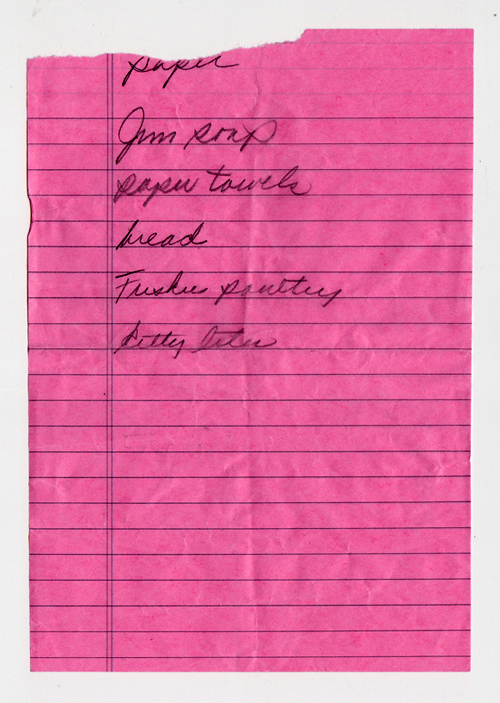 paper
Jim soap
paper towels
bread
Friskies poultry
kitty liter